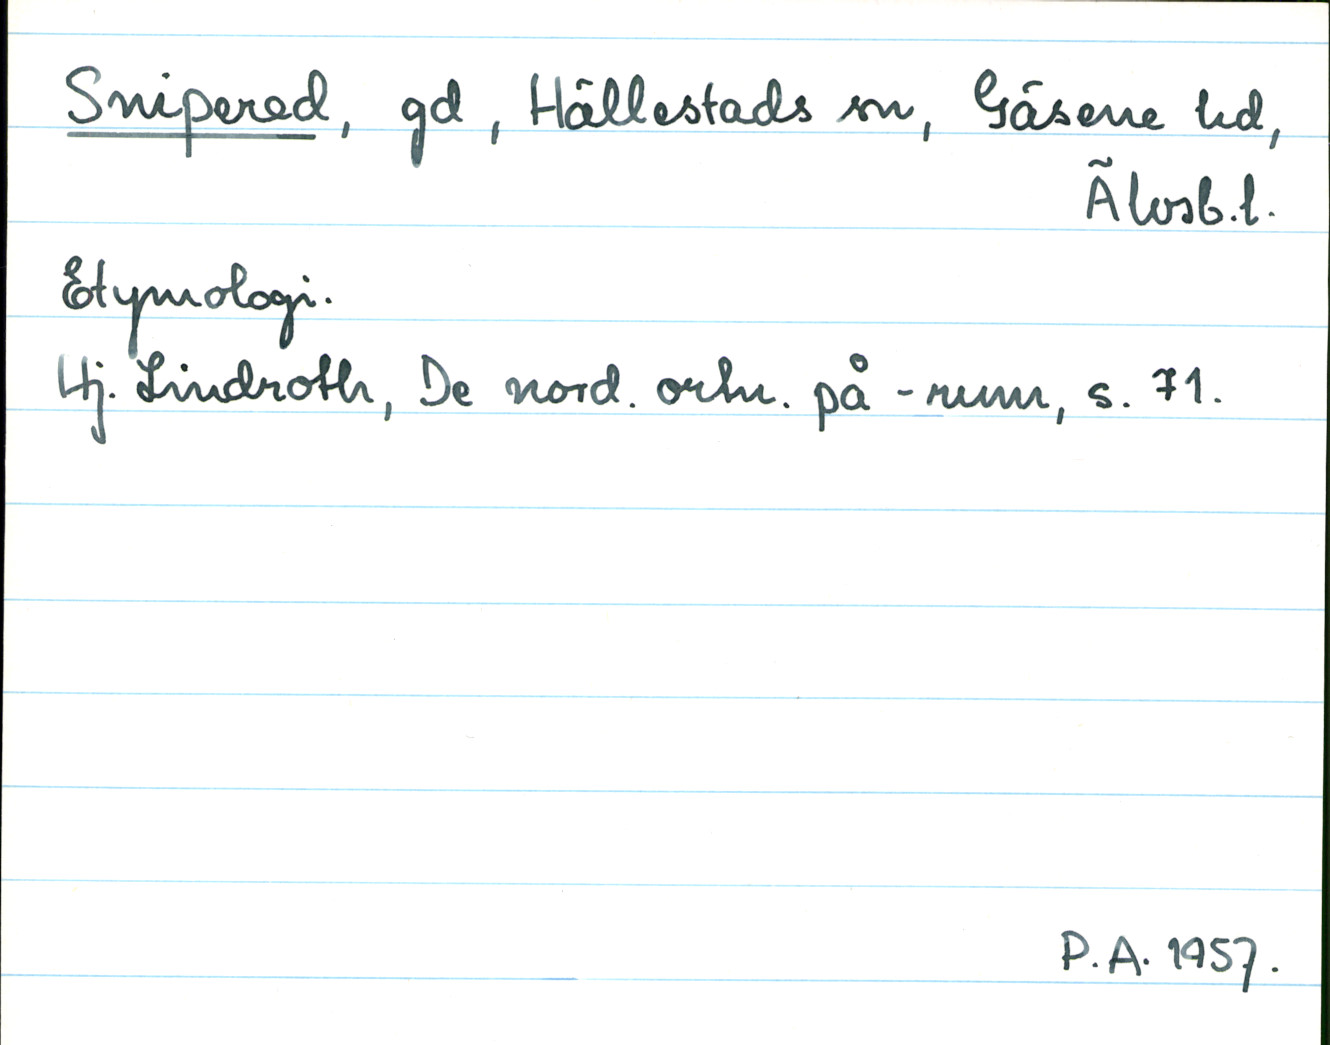 Snipered, gd, Hällestads sn, Gäsene hd,
Älvsb.l.
Etymologi.
Hj. Lindroth, De nord. ortn. på -rum, s. 71.
P.A. 1957.